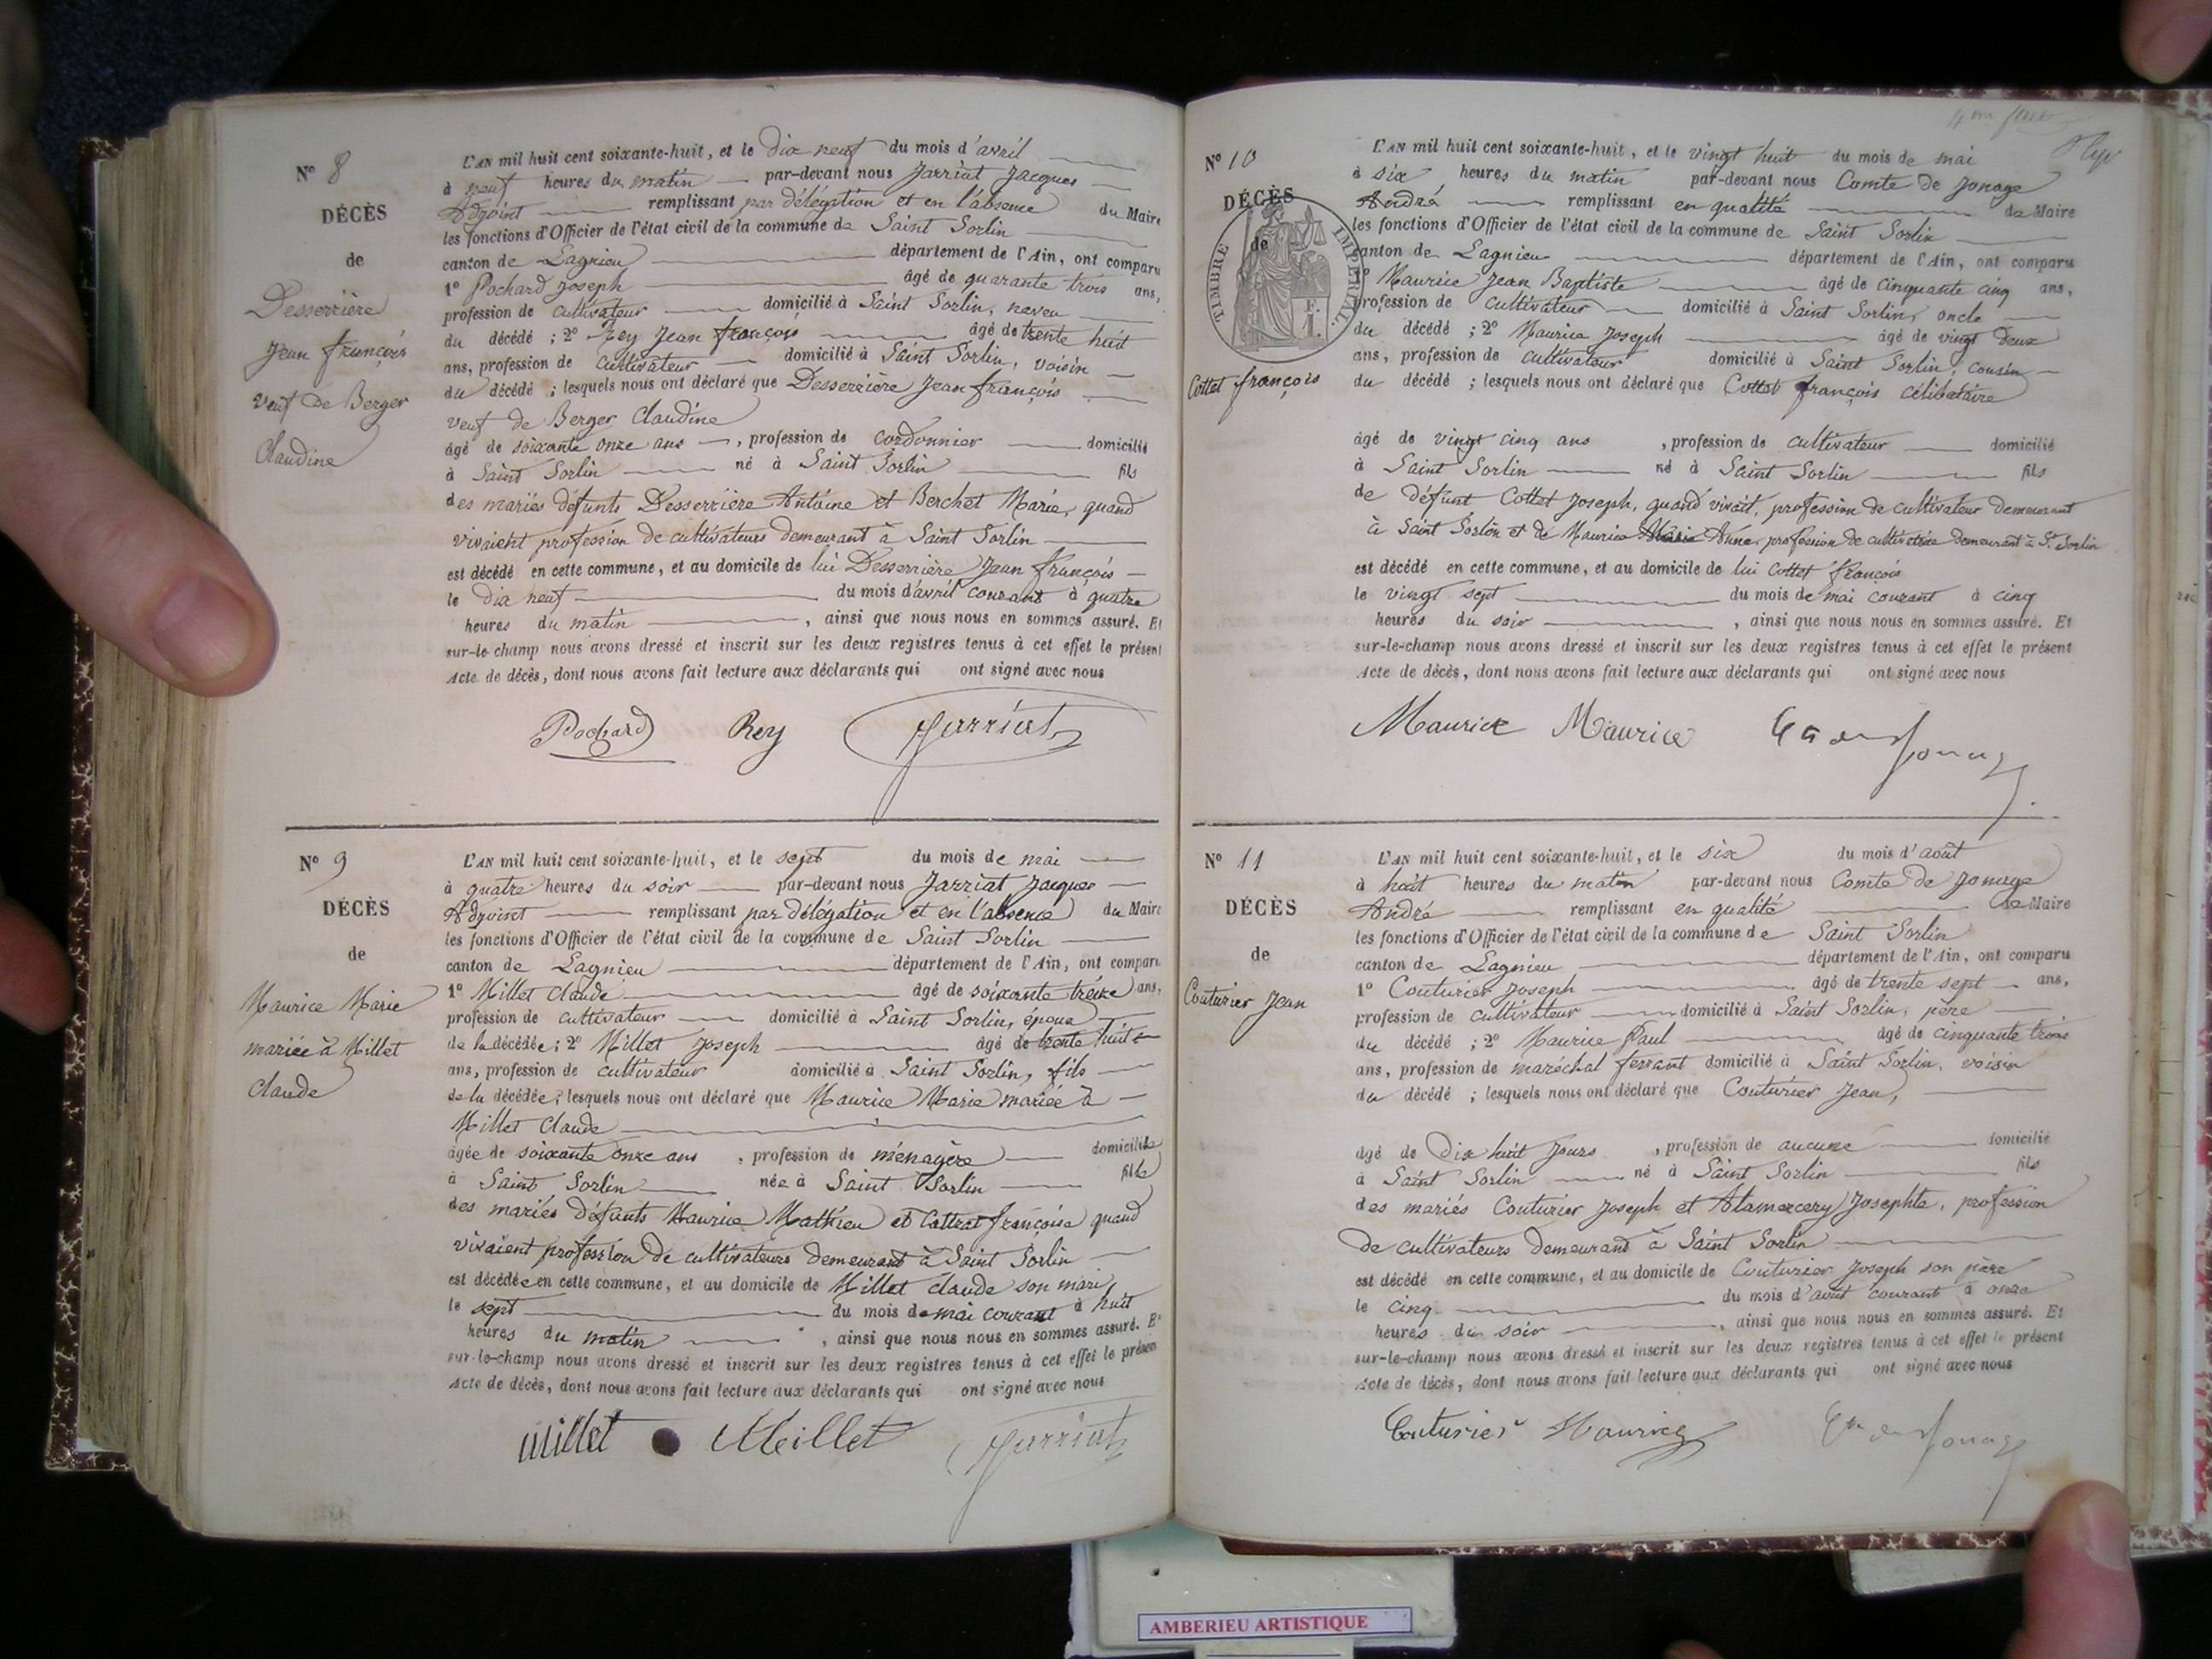 N° 8
DÉCÈS
de
Desserrière
Jean françois
veuf de Berger
Claudine
L'AN mil huit cent soixante-huit, et le dix neuf du mois d'avril
à neuf heures du matin par-devant nous Jarriat Jacques
Adjoint remplissant par délégation et en l'absence du Maire
les fonctions d'Officier de l'état civil de la commune de Saint Sorlin
canton de Lagnieu département de l'Ain, ont comparu
1° Pochard Joseph âgé de quarante trois ans,
profession de cultivateur domicilié à Saint Sorlin, neveu
du décédé ; 2° Rey Jean françois âgé de trente huit
ans, profession de cultivateur domicilié à Saint Sorlin, voisin
du décédé ; lesquels nous ont déclaré que Desserrière Jean françois
veuf de Berger Claudine
âgé de soixante onze ans , profession de cordonnier domicilié
à Saint Sorlin né à Saint Sorlin fils
des mariés défunts Desserrière Antoine et Berchet Marie, quand
vivaient profession de cultivateurs demeurant à Saint Sorlin
est décédé en cette commune, et au domicile de lui Desserrière Jean françois
le dix neuf du mois d'avril courant à quatre
heures du matin , ainsi que nous nous en sommes assuré. Et
sur-le-champ nous avons dressé et inscrit sur les deux registres tenus à cet effet le présent
acte de décès, dont nous avons fait lecture aux déclarants qui ont signé avec nous
Pochard Rey Jarriat
N° 9
DÉCÈS
de
Maurice Marie
mariée à Millet
Claude
L'AN mil huit cent soixante-huit, et le sept du mois de mai
à quatre heures du soir par-devant nous Jarriat Jacques
Adjoint remplissant par délégation et en l'absence du Maire
les fonctions d'Officier de l'état civil de la commune de Saint Sorlin
canton de Lagnieu département de l'Ain, ont comparu
1° Millet Claude âgé de soixante treize ans,
profession de cultivateur domicilié à Saint Sorlin, époux
de la décédée ; 2° Millet Joseph âgé de trente huit
ans, profession de cultivateur domicilié à Saint Sorlin, fils
de la décédée ; lesquels nous ont déclaré que Maurice Marie mariée à
Millet Claude
âgée de soixante onze ans , profession de ménagère domiciliée
à Saint Sorlin née à Saint Sorlin fille
des mariés défunts Maurice Mathieu et Cottrat françoise quand
vivaient profession de cultivateurs demeurant à Saint Sorlin
est décédée en cette commune, et au domicile de Millet Claude son mari
le sept du mois de mai courant à huit
heures du matin , ainsi que nous nous en sommes assuré. Et
sur-le-champ nous avons dressé et inscrit sur les deux registres tenus à cet effet le présen
acte de décès, dont nous avons fait lecture aux déclarants qui ont signé avec nous
Millet Millet Jarriat
N° 10
DÉCÈS
de
TIMBRE IMPÉRIAL
F. 1.
Cottet françois
L'AN mil huit cent soixante-huit, et le vingt huit du mois de mai
à six heures du matin par-devant nous Comte de Jonage
André remplissant en qualité de Maire
les fonctions d'Officier de l'état civil de la commune de Saint Sorlin
canton de Lagnieu département de l'Ain, ont comparu
1° Maurice Jean Baptiste âgé de cinquante cinq ans,
profession de cultivateur domicilié à Saint Sorlin, oncle
du décédé ; 2° Maurice Joseph âgé de vingt deux
ans, profession de cultivateur domicilié à Saint Sorlin, cousin
du décédé ; lesquels nous ont déclaré que Cottet françois célibataire
âgé de vingt cinq ans , profession de cultivateur domicilié
à Saint Sorlin né à Saint Sorlin fils
de défunt Cottet Joseph, quand vivait, profession de cultivateur demeurant
à Saint Sorlin et de Maurice Marie Anne, profession de cultivatrice demeurant à St Sorlin
est décédé en cette commune, et au domicile de lui Cottet françois
le vingt sept du mois de mai courant à cinq
heures du soir , ainsi que nous nous en sommes assuré. Et
sur-le-champ nous avons dressé et inscrit sur les deux registres tenus à cet effet le présent
acte de décès, dont nous avons fait lecture aux déclarants qui ont signé avec nous
Maurice Maurice Jonage
N° 11
DÉCÈS
de
Couturier Jean
L'AN mil huit cent soixante-huit, et le six du mois d'août
à huit heures du matin par-devant nous Comte de Jonage
André remplissant en qualité de Maire
les fonctions d'Officier de l'état civil de la commune de Saint Sorlin
canton de Lagnieu département de l'Ain, ont comparu
1° Couturier Joseph âgé de trente sept ans,
profession de cultivateur domicilié à Saint Sorlin, père
du décédé ; 2° Maurice Paul âgé de cinquante trois
ans, profession de maréchal ferrant domicilié à Saint Sorlin, voisin
du décédé ; lesquels nous ont déclaré que Couturier Jean,
âgé de Dix huit Jours , profession de aucune domicilié
à Saint Sorlin né à Saint Sorlin fils
des mariés Couturier Joseph et Alamercery Josephte, profession
de cultivateurs demeurand à Saint Sorlin
est décédé en cette commune, et au domicile de Couturier Joseph son père
le cinq du mois d'août courant à onze
heures du soir , ainsi que nous nous en sommes assuré. Et
sur-le-champ nous avons dressé et inscrit sur les deux registres tenus à cet effet le présent
acte de décès, dont nous avons fait lecture aux déclarants qui ont signé avec nous
Couturier Maurice Jonage
AMBERIEU ARTISTIQUE